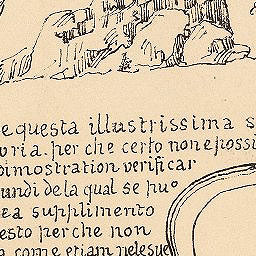 e questa illustrissima s
uria. per che certo non e possi
dimostration verificar
undi de la qual se puo
ea supplimento
esto per che non
a come etiam nele sue